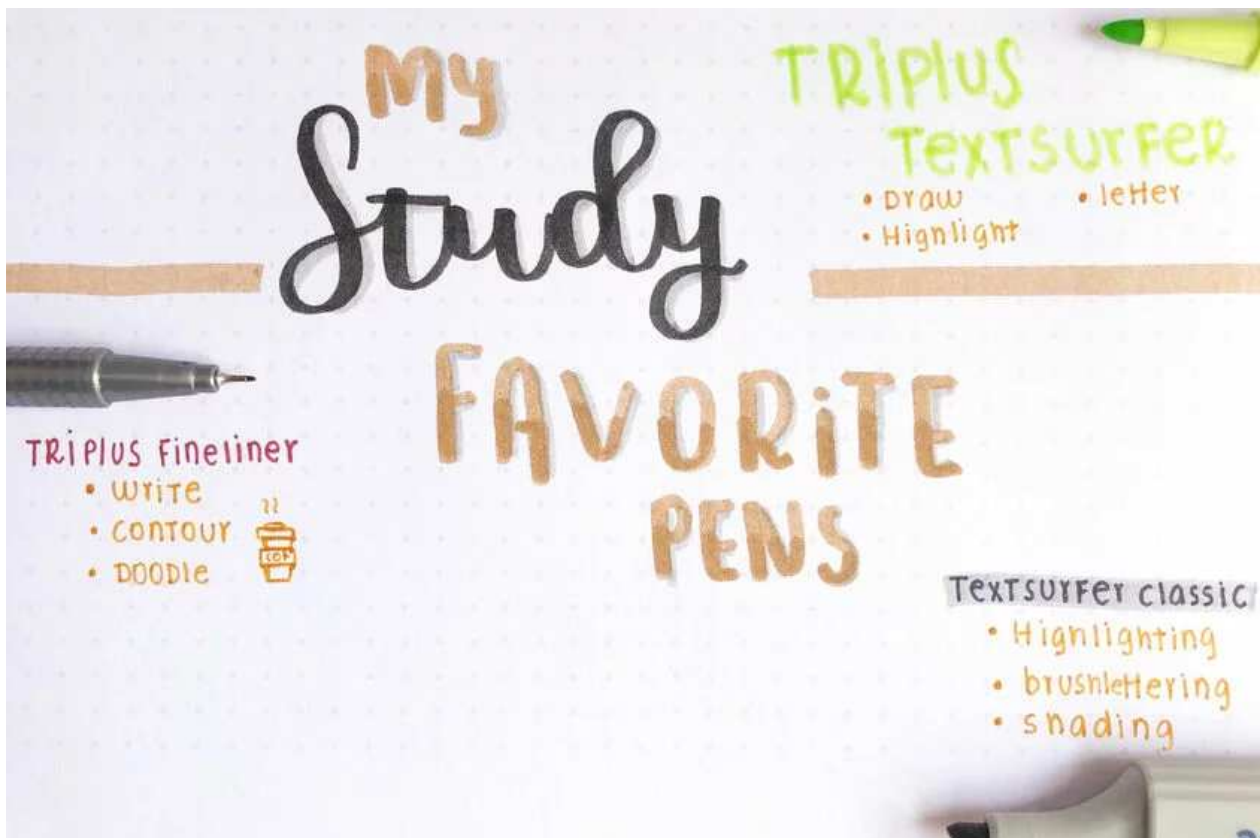 My
Study
FAVORiTE
PENS
TRiPLUS
TexTSurFer
• Draw
• Highlight
• letter
TRiPlus Fineliner
• WriTe
• conTour
• DOODle
COF
TexTSurFer classic
• Highlighting
• brushlettering
• shading